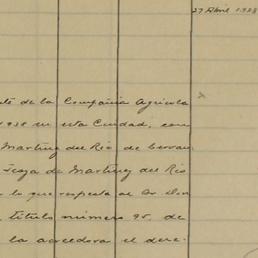 27 Abril 1938
de la Compañia Agricola
1938 en esta Ciudad, con
Martinez del Rio de
de Martinez del Rio
lo que respecta al Sr. Don
titulo número 95. de
la acreedora el dere-